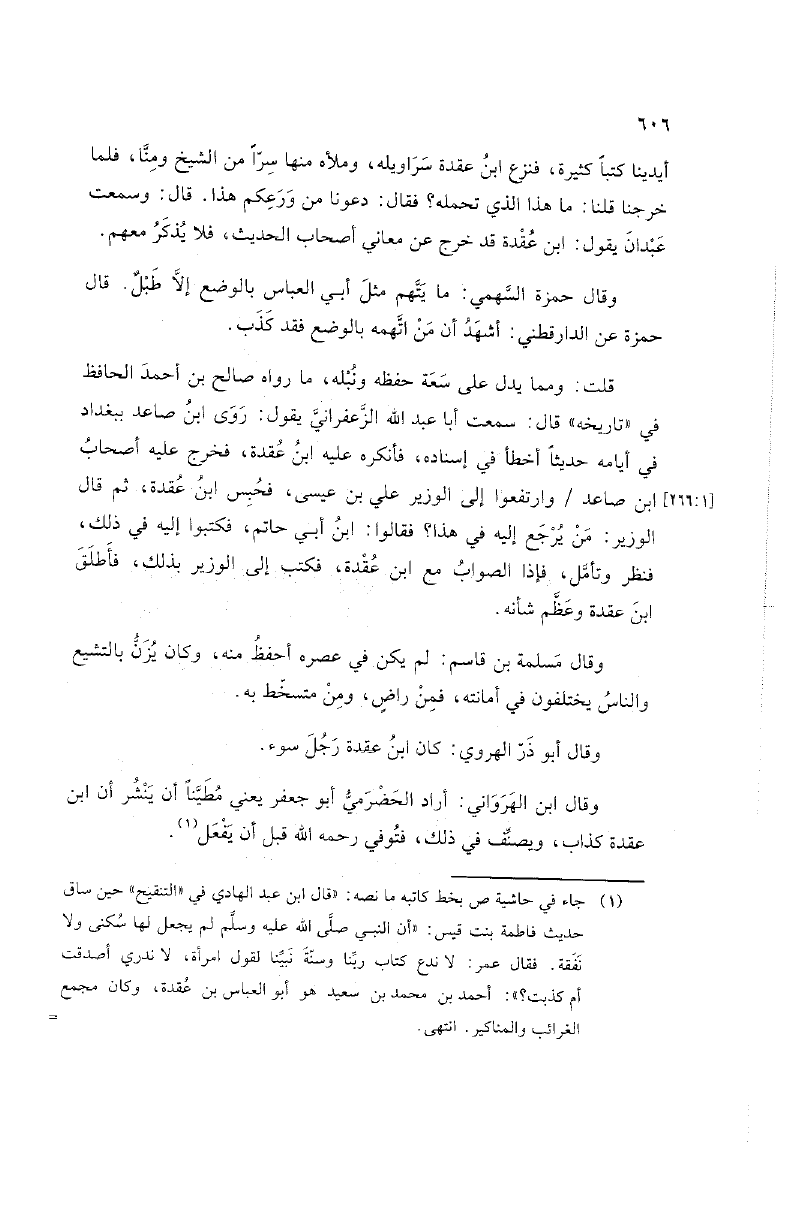 ٦٠٦
أيدينا كتباً كثيرة، فنزع ابنُ عقدة سَرَاويله، وملأه منها سِرّاً من الشيخ ومِنَّا، فلما
خرجنا قلنا: ما هذا الذي تحمله؟ فقال: دعونا من وَرَعِكم هذا. قال: وسمعت
عَبْدانَ يقول: ابن عُقْدة قد خرج عن معاني أصحاب الحديث، فلا يُذكَرُ معهم.
وقال حمزة السَّهمي: ما يَتَّهم مثلَ أبي العباس بالوضع إلاَّ طَبْلٌ. قال
حمزة عن الدارقطني: أشهَدُ أن مَنْ اتَّهمه بالوضع فقد كَذَب.
قلت: ومما يدل على سَعَة حفظه ونُبْله، ما رواه صالح بن أحمدَ الحافظ
في «تاريخه» قال: سمعت أبا عبد الله الزَّعفرانيَّ يقول: رَوَى ابنُ صاعد ببغداد
في أيامه حديثاً أخطأ في إسناده، فأنكره عليه ابنُ عُقدة، فخرج عليه أصحابُ
[٢٦٦:١] ابن صاعد / وارتفعوا إلى الوزير علي بن عيسى، فحُبِس ابنُ عُقدة، ثم قال
الوزير: مَنْ يُرْجَع إليه في هذا؟ فقالوا: ابنُ أبي حاتم، فكتبوا إليه في ذلك،
فنظر وتأمَّل، فإذا الصوابُ مع ابن عُقْدة، فكتب إلى الوزير بذلك، فأَطلَقَ
ابنَ عقدة وعَظَّم شأنه.
وقال مَسلمة بن قاسم: لم يكن في عصره أحفظُ منه، وكان يُزَنُّ بالتشيع
والناسُ يختلفون في أمانته، فمِنْ راضٍ، ومِنْ متسخّط به.
وقال أبو ذَرّ الهروي: كان ابنُ عقدة رَجُلَ سوء.
وقال ابن الهَرَوَاني: أراد الحَضْرَميُّ أبو جعفر يعني مُطَيَّناً أن يَنْشُر أن ابن
عقدة كذاب، ويصنِّف في ذلك، فتُوفي رحمه الله قبل أن يَفْعَل(١).
(١) جاء في حاشية ص بخط كاتبه ما نصه: «قال ابن عبد الهادي في «التنقيح» حين ساق
حديث فاطمة بنت قيس: «أن النبي صلَّى الله عليه وسلَّم لم يجعل لها سُكنى ولا
نَفَقة. فقال عمر: لا ندع كتاب ربِّنا وسنّةَ نَبيِّنا لقول امرأة، لا ندري أصدقت
أم كذبت؟»: أحمد بن محمد بن سعيد هو أبو العباس بن عُقدة، وكان مجمع
الغرائب والمناكير. انتهى.
=